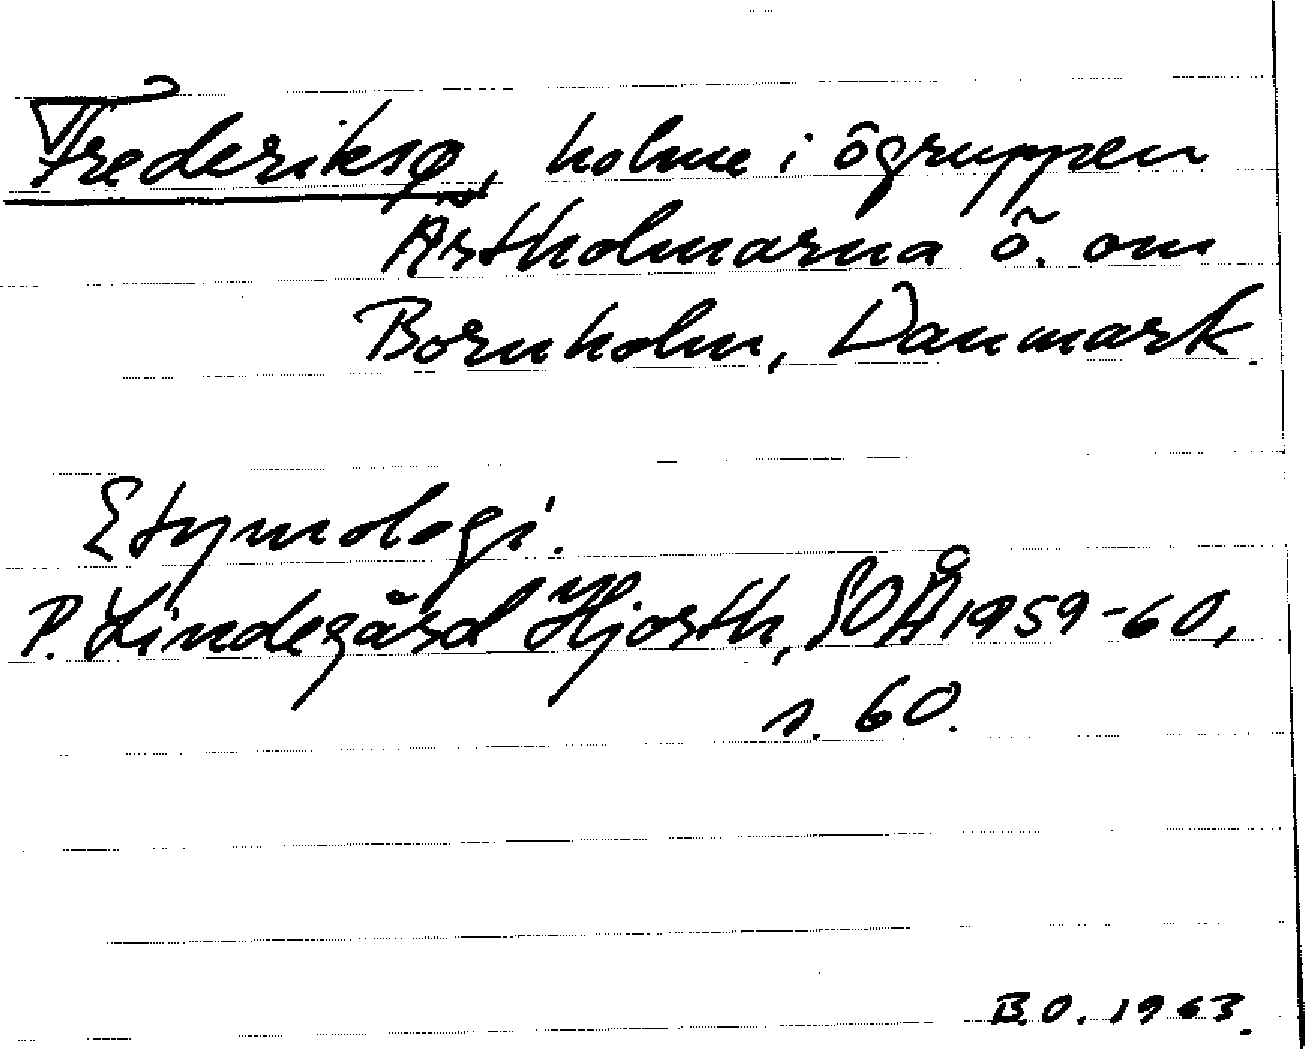 Frederiksø, holme i ögruppen
Ärtholmarna ö. om
Bornholm, Danmark.
Etymologi.
P. Lindegård Hjorth, SOÅ 1959-60,
s. 60.
B.O. 1963.